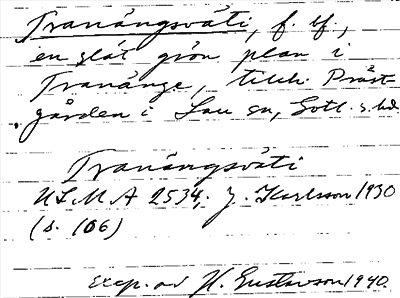 Tranängsväti, f. bf.,
en slät grön plan i
Tranänge, tillh. Präst-
gården i Lau sn, Gotl. s. hd.
Tranängsväti
ULMA 2534, J. Karlsson 1930
(s. 106)
excp. av H. Gustavson 1940.